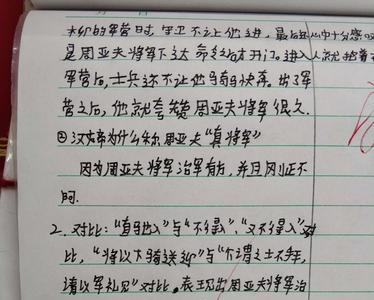 的军营时，守卫不让他进，最后
是周亚夫将军下达命令后才开门。进入
军营后，士兵还不让他骑马快奔。出了军
营之后，他就夸赞周亚夫将军很久.
②汉文帝为什么称周亚夫“真将军”
因为周亚夫将军治军有方，并且刚正不
阿.
2. 对比：“直驰入”与“不得入”、“又不得入”对
比，“将以下骑送迎”与“介胄之士不拜，
请以军礼见”对比。表现出周亚夫将军治